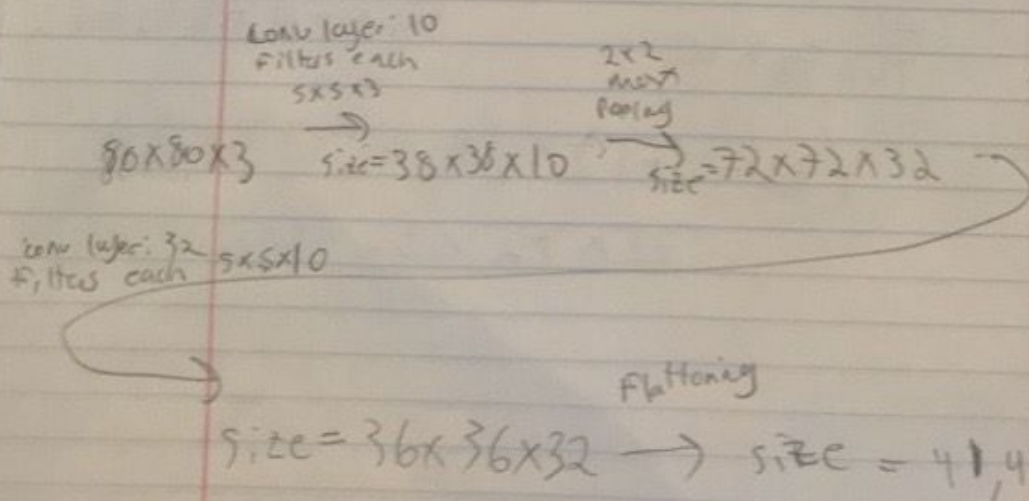 conv layer: 10
filters each
5x5x3
2x2
max
Pooling
80x80x3 → size=38x38x10 → size=72x72x32
conv layer: 32
filters each 5x5x10
Flattening
size = 36x36x32 → size = 41,4